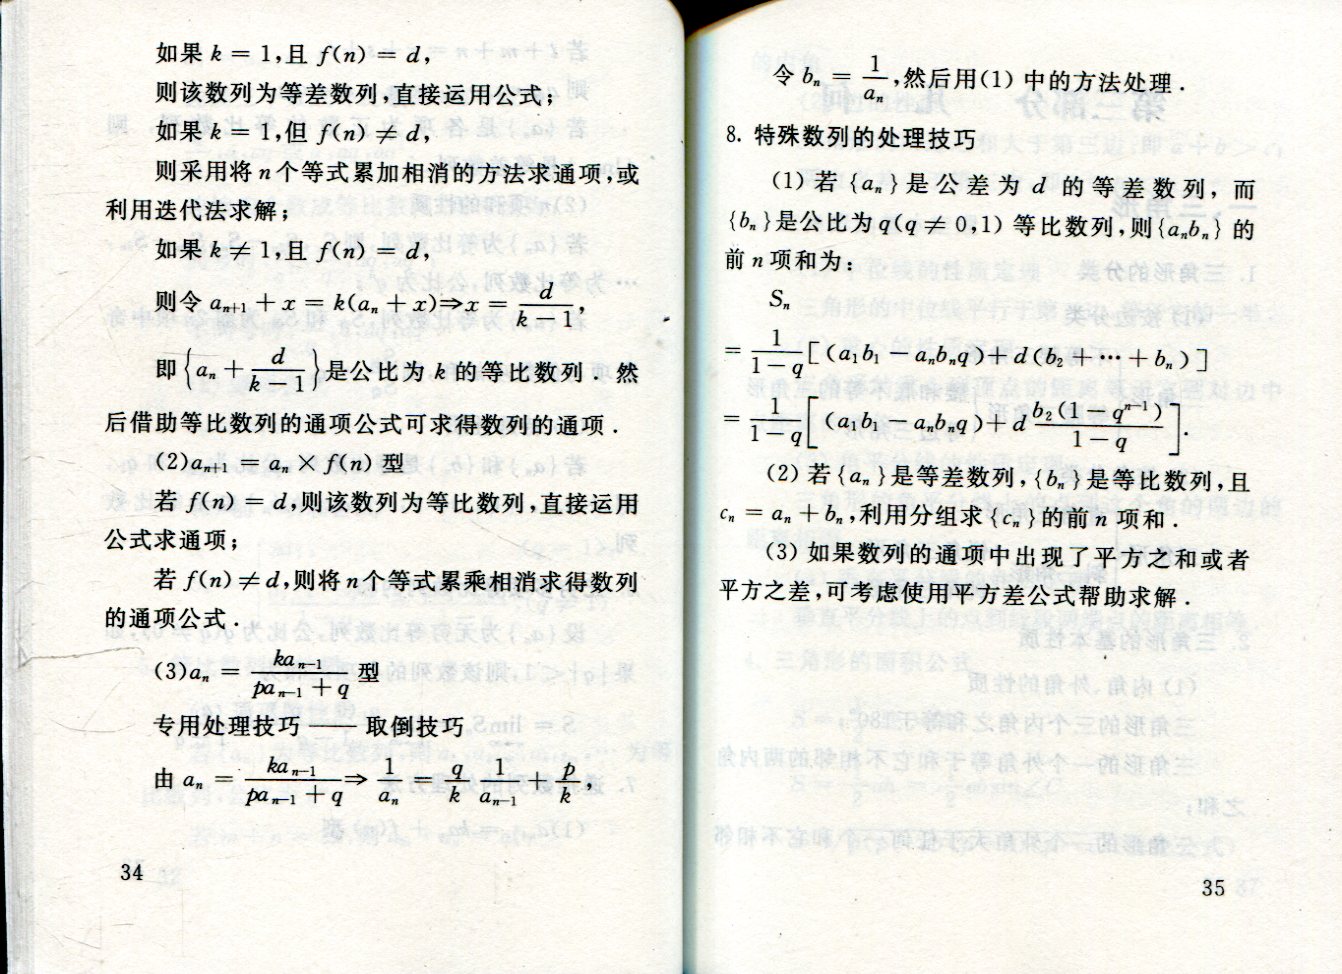 如果 k = 1,且 f(n) = d,
则该数列为等差数列,直接运用公式;
如果 k = 1,但 f(n) ≠ d,
则采用将 n 个等式累加相消的方法求通项,或
利用迭代法求解;
如果 k ≠ 1,且 f(n) = d,
则令 aₙ₊₁ + x = k(aₙ + x)⇒x = d/(k − 1),
即{aₙ + d/(k − 1)}是公比为 k 的等比数列．然
后借助等比数列的通项公式可求得数列的通项．
(2)aₙ₊₁ = aₙ × f(n) 型
若 f(n) = d,则该数列为等比数列,直接运用
公式求通项;
若 f(n) ≠ d,则将 n 个等式累乘相消求得数列
的通项公式．
(3)aₙ = kaₙ₋₁/(paₙ₋₁ + q) 型
专用处理技巧 —— 取倒技巧
由 aₙ = kaₙ₋₁/(paₙ₋₁ + q) ⇒ 1/aₙ = q/k · 1/aₙ₋₁ + p/k,
34
令 bₙ = 1/aₙ,然后用(1) 中的方法处理．
8. 特殊数列的处理技巧
(1) 若 {aₙ} 是公差为 d 的等差数列, 而
{bₙ}是公比为 q(q ≠ 0,1) 等比数列,则{aₙbₙ} 的
前 n 项和为:
Sₙ
= 1/(1 − q)[(a₁b₁ − aₙbₙq) + d(b₂ + ⋯ + bₙ)]
= 1/(1 − q)[(a₁b₁ − aₙbₙq) + d b₂(1 − qⁿ⁻¹)/(1 − q)].
(2) 若{aₙ}是等差数列,{bₙ}是等比数列,且
cₙ = aₙ + bₙ,利用分组求{cₙ}的前 n 项和．
(3) 如果数列的通项中出现了平方之和或者
平方之差,可考虑使用平方差公式帮助求解．
35